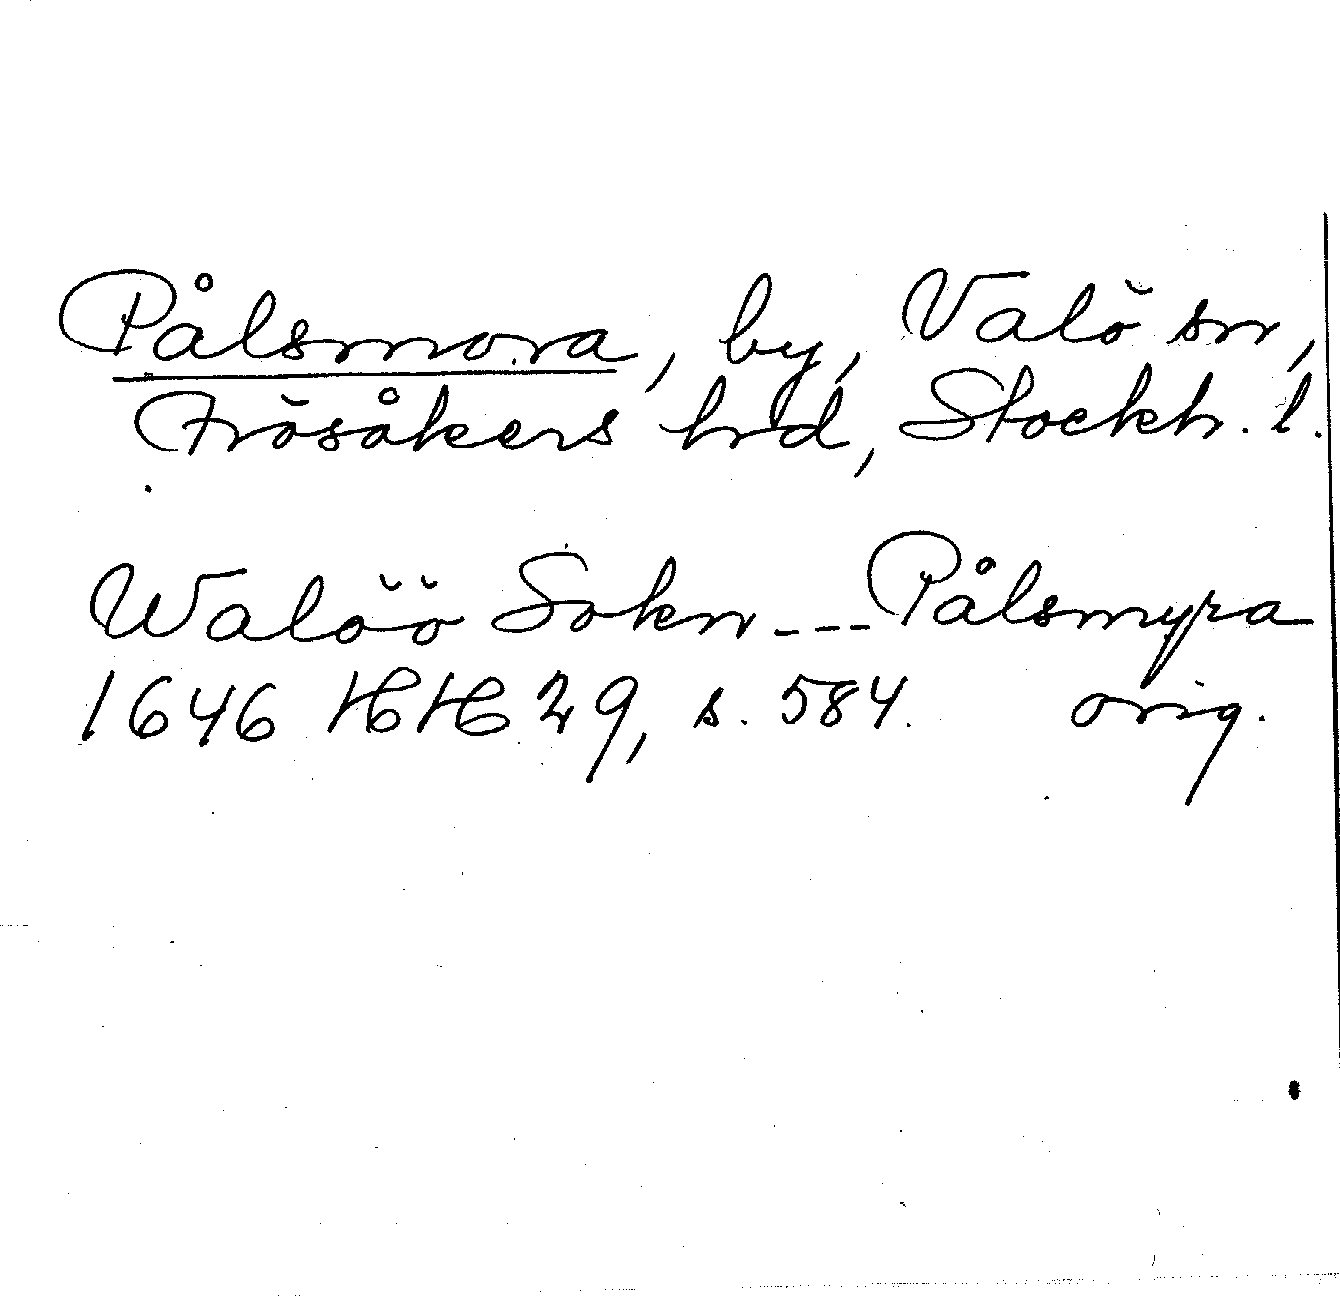 Pålsmora, by, Valö sn,
Frösåkers hrd, Stockh. l.
Walöö Sokn --- Pålsmyra
1646 HH 29, s. 584. orig.